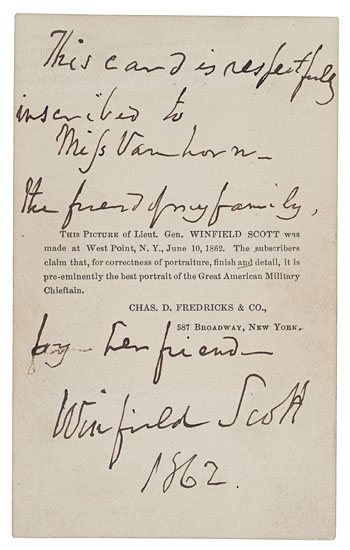 This card is respectfully
inscribed to
Miss Vanhorn—
the friend of my family,
THIS PICTURE of Lieut. Gen. WINFIELD SCOTT was
made at West Point, N. Y., June 10, 1862. The subscribers
claim that, for correctness of portraiture, finish and detail, it is
pre-eminently the best portrait of the Great American Military
Chieftain.
CHAS. D. FREDRICKS & CO.,
587 BROADWAY, NEW YORK.
by—her friend—
Winfield Scott
1862.